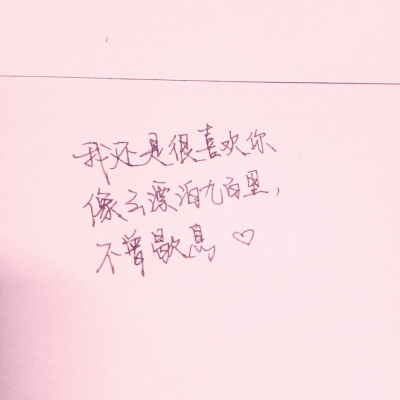 我还是很喜欢你
像云漂泊九百里，
不曾歇息 ♡